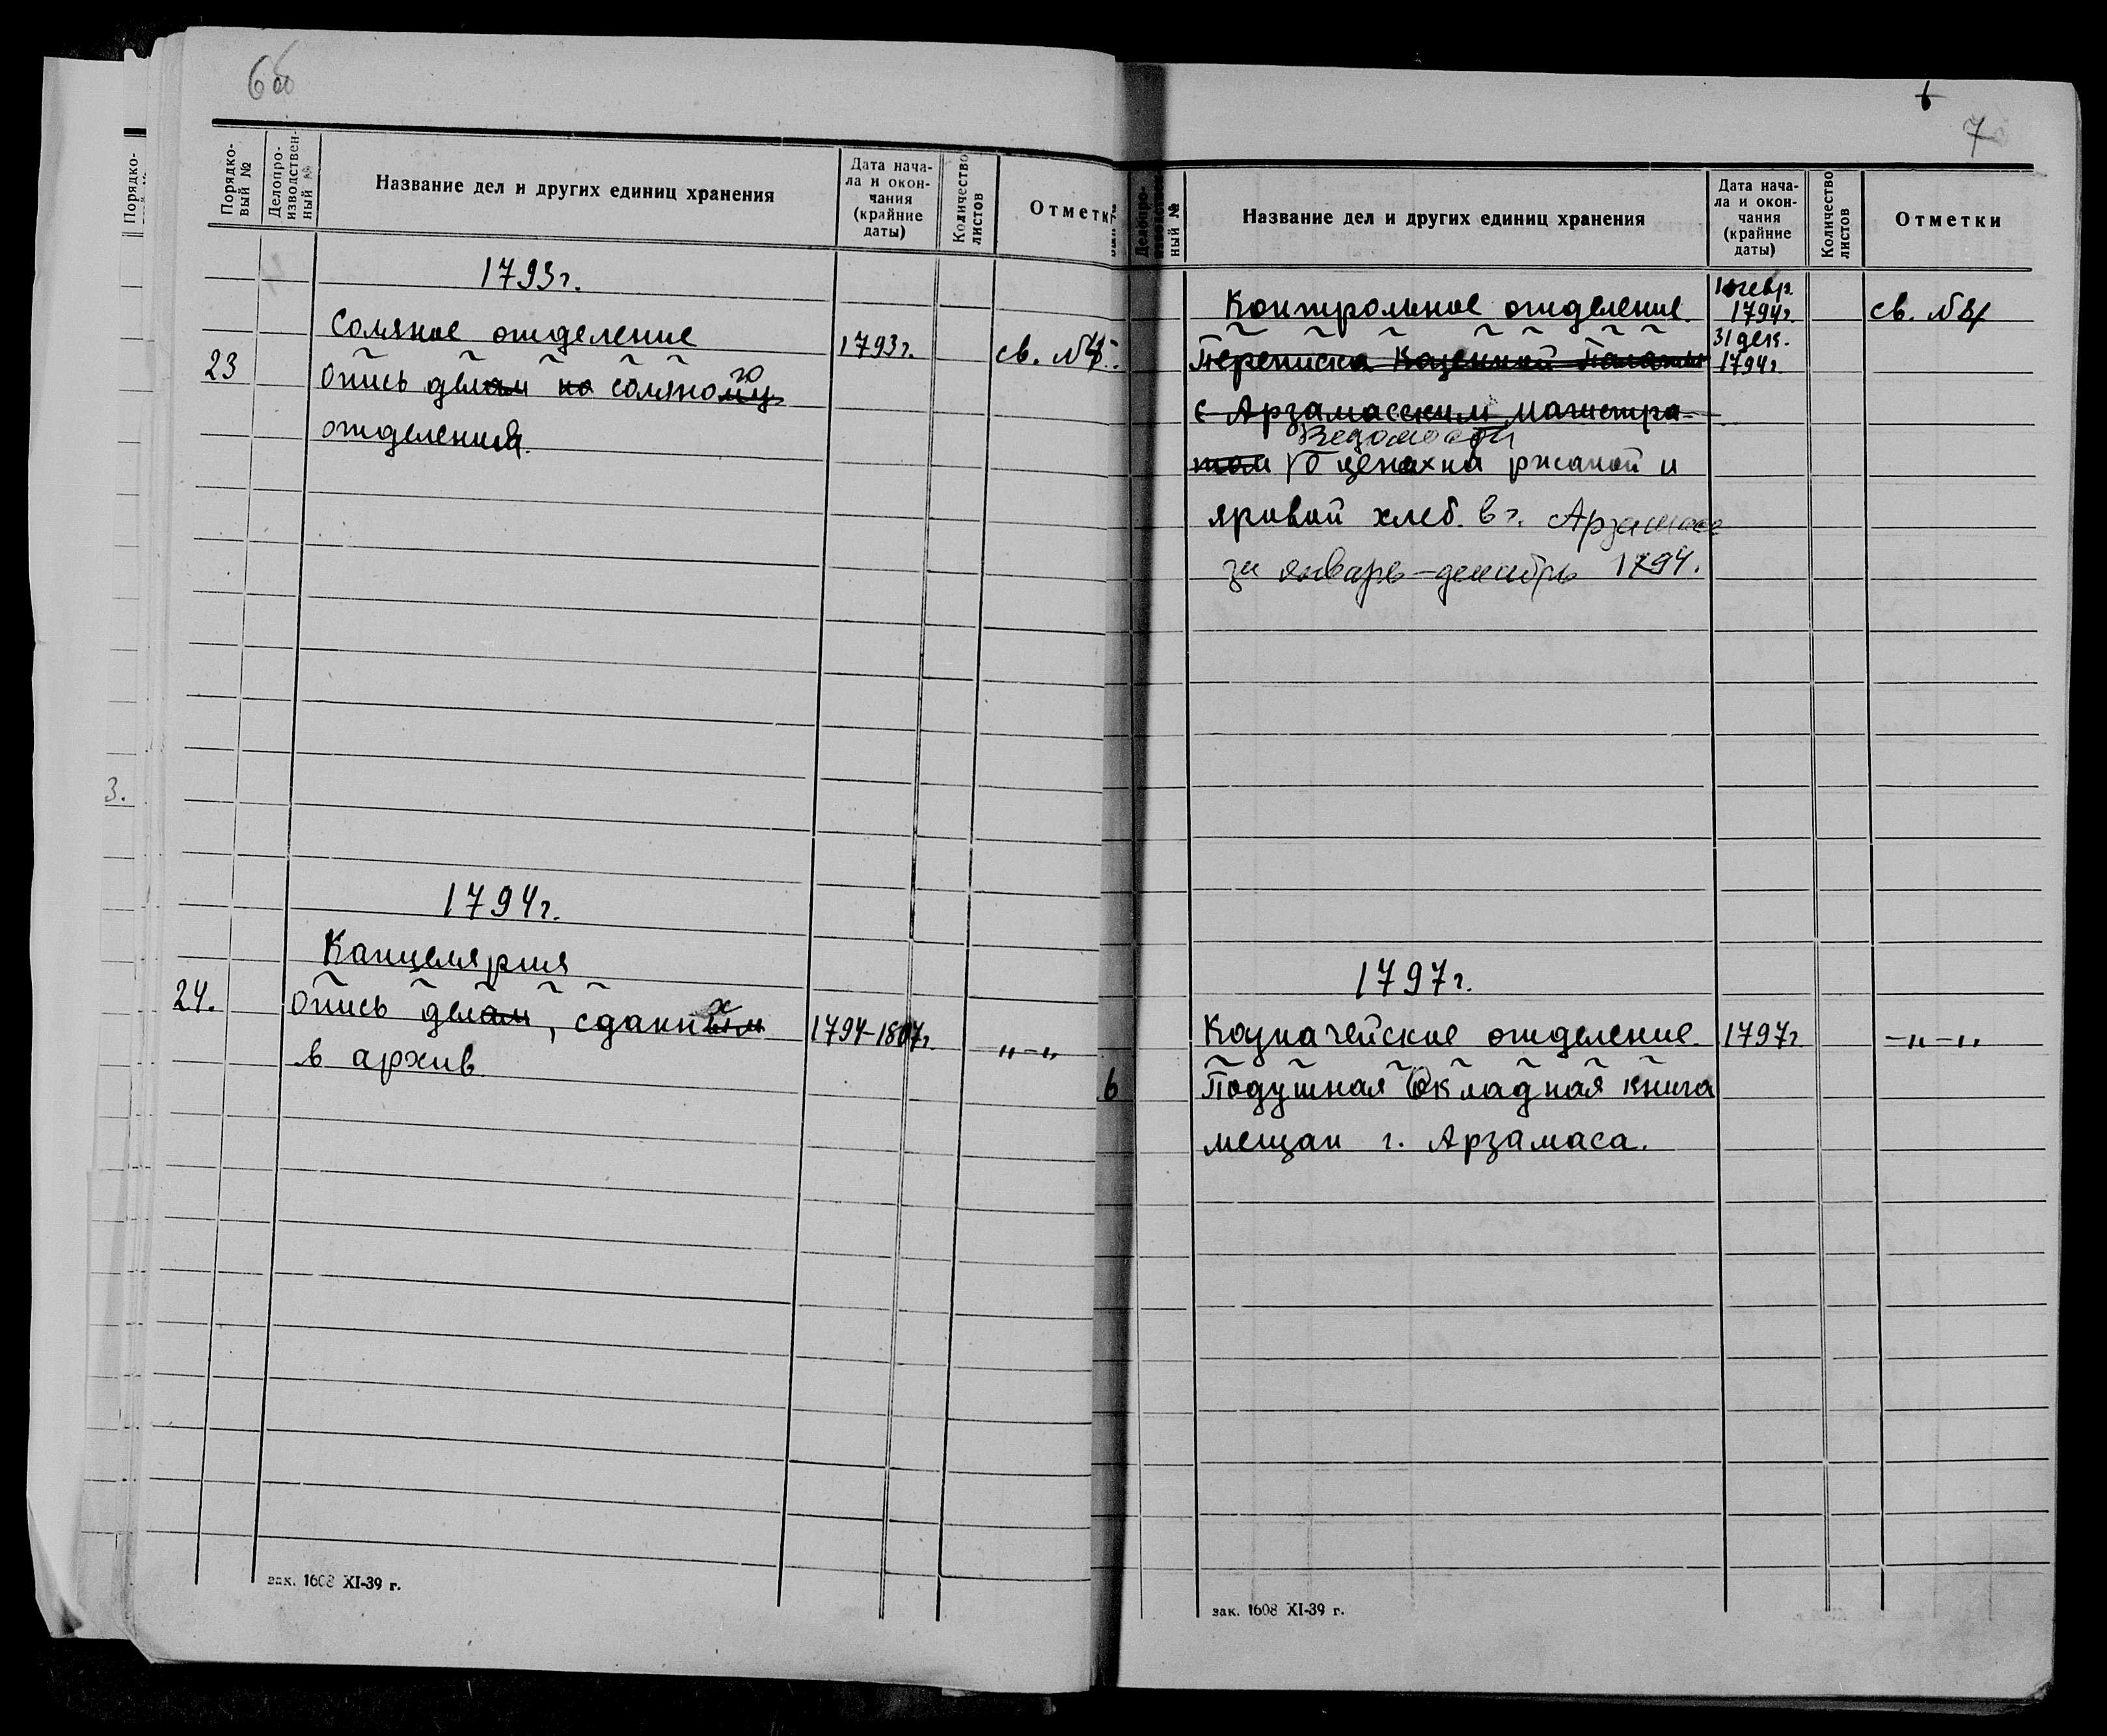 6об
Порядко-
вый №
Делопро-
изводствен-
ный №
Название дел и других единиц хранения
Дата нача-
ла и окон-
чания
(крайние
даты)
Количество
листов
Отметк
1793г.
Соляное отделение
1793г.
св. №4
23
Опись делам по соляному го
отделения.
1794г.
Канцелярия
24.
Опись делам, сданным х
1794-1807г.
„-„
в архив
зак. 1608 XI-39 г.
Порядко-
3.
6
7
Делопро-
ный №
Название дел и других единиц хранения
Дата нача-
ла и окон-
чания
(крайние
даты)
Количество
листов
Отметки
Контрольное отделение.
1794г.
св. №4
31 дек.
1794г.
Переписка Казенной Палаты
с Арзамасским магистра-
Ведомости
том о ценах на ржаной и
яровой хлеб. в г. Арзамасе
за январь-декабрь 1794.
1797г.
Казначейское отделение.
1797г
-„-„
6
Подушная Окладная книга
мещан г. Арзамаса.
зак. 1608 XI-39 г.